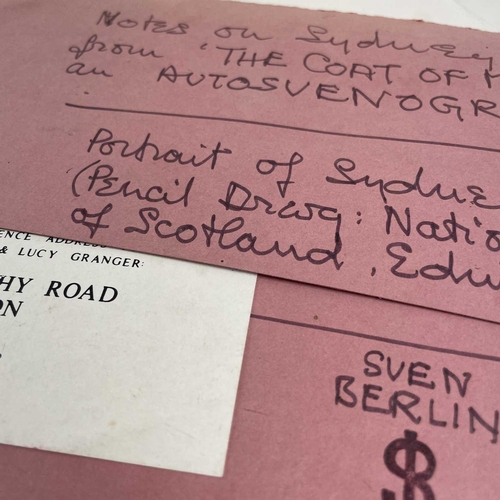 Notes on Sydney
from 'THE COAT OF M
an AUTOSVENOGR
Portrait of Sydne
(Pencil Drwg: Natio
of Scotland, Edin
ENCE ADDRESS
& LUCY GRANGER:
HY ROAD
ON
SVEN
BERLIN